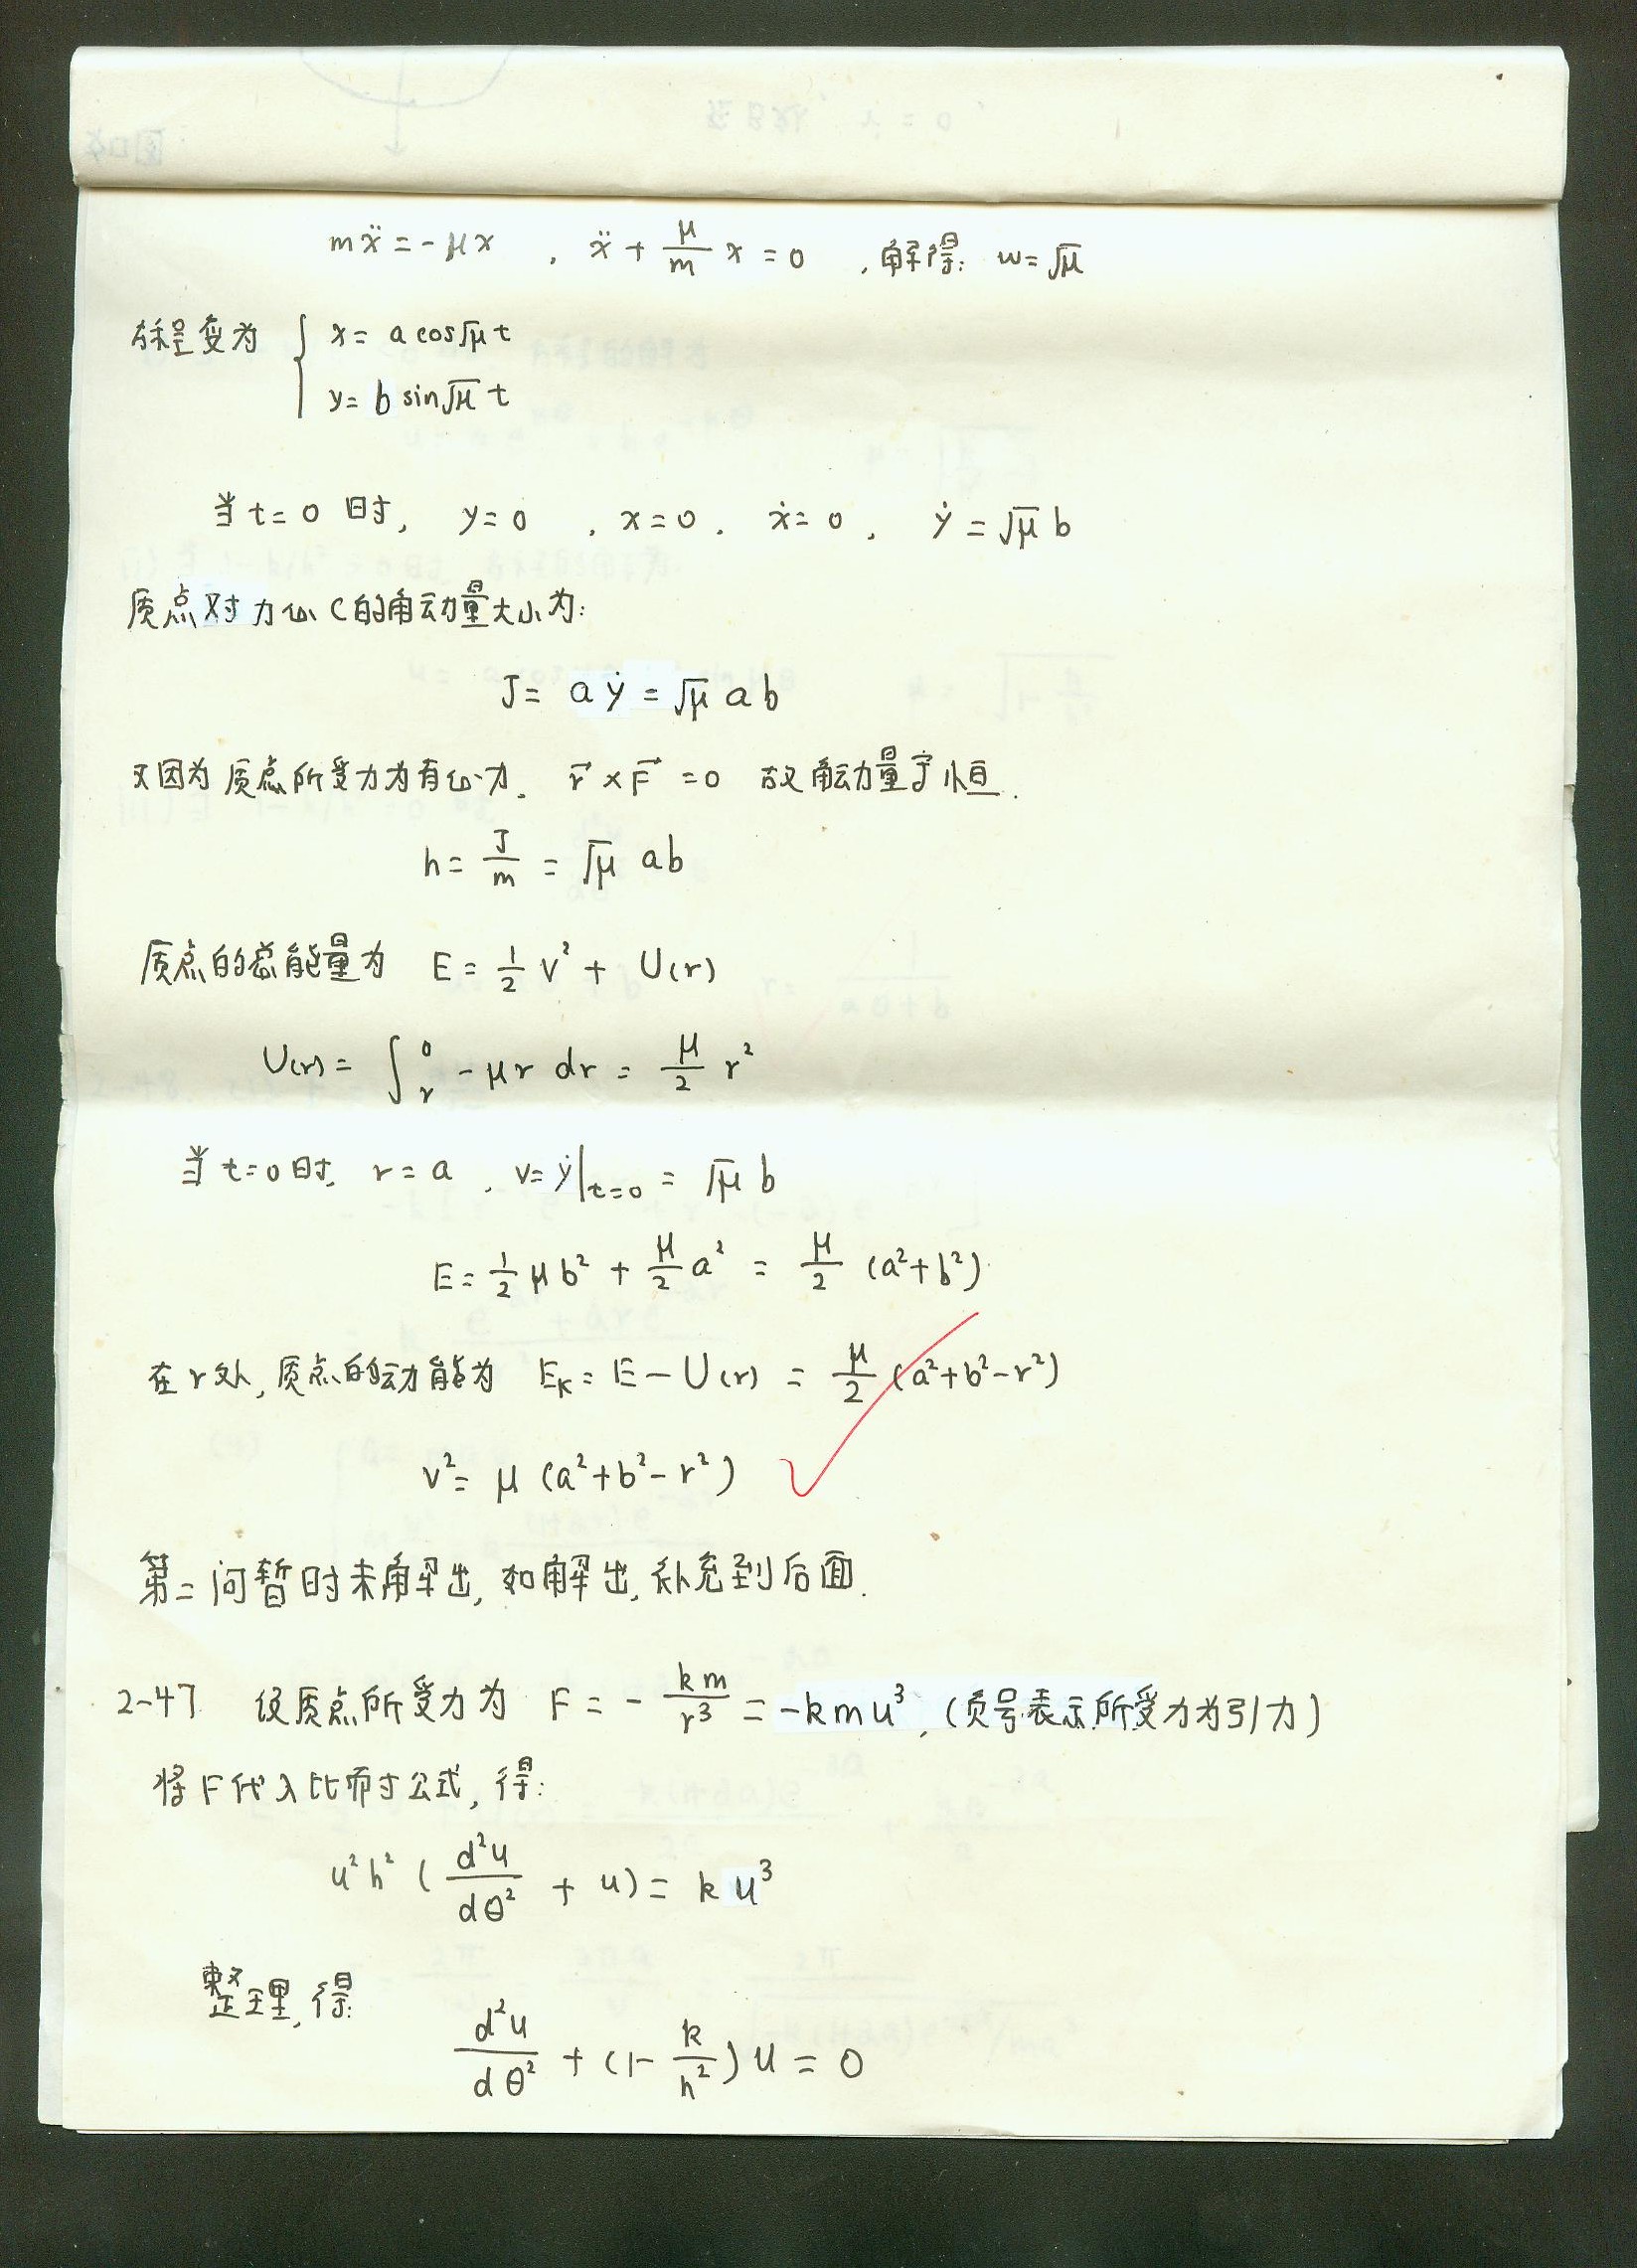 mẍ = -μx , ẍ + μ/m x = 0 , 解得: w = √μ
方程变为 { x = a cos√μ t
y = b sin√μ t
当 t = 0 时, y = 0 , x = 0 . ẋ = 0 , ẏ = √μ b
质点对力心 C 的角动量大小为:
J = aẏ = √μ ab
又因为质点所受力为有心力. r⃗ × F⃗ = 0 故角动量守恒.
h = J/m = √μ ab
质点的总能量为 E = 1/2 v² + U(r)
U(r) = ∫_r^0 -μr dr = μ/2 r²
当 t=0 时, r = a , v = ẏ|_{t=0} = √μ b
E = 1/2 μb² + μ/2 a² = μ/2 (a²+b²)
在 r 处, 质点的动能为 E_K = E - U(r) = μ/2 (a²+b²-r²)
v² = μ (a²+b²-r²)
第二问暂时未解出, 如解出, 补充到后面.
2-47 设质点所受力为 F = - km/r³ = -kmu³, (负号表示所受力为引力)
将 F 代入比耐寸公式, 得:
u²h² ( d²u/dθ² + u) = ku³
整理, 得:
d²u/dθ² + (1 - k/h²) u = 0